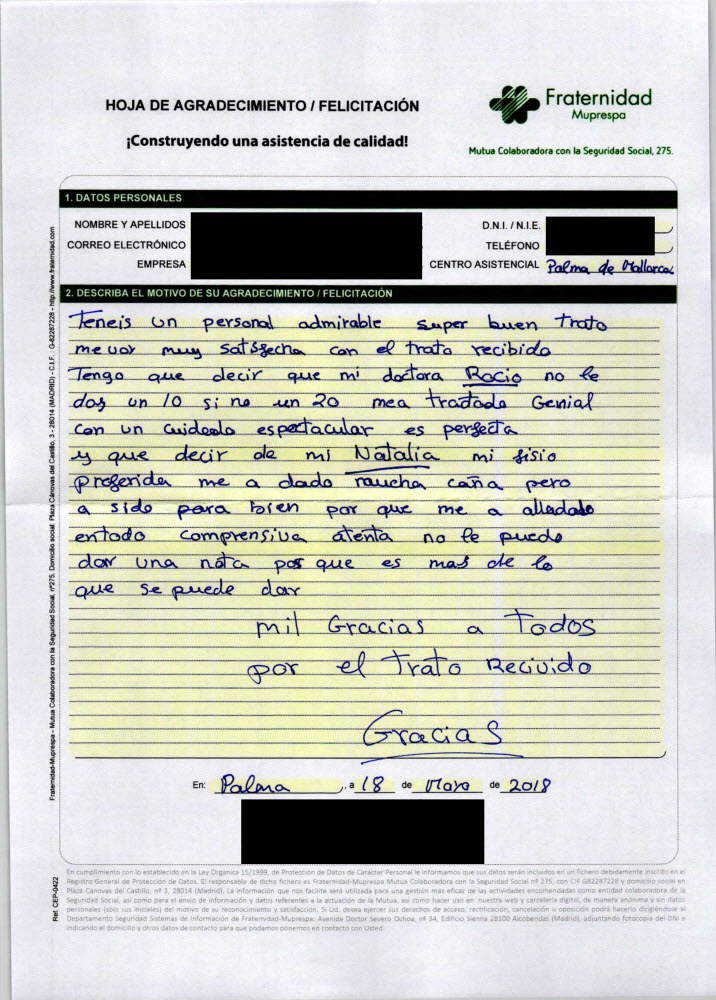 HOJA DE AGRADECIMIENTO / FELICITACIÓN
¡Construyendo una asistencia de calidad!
Fraternidad
Muprespa
Mutua Colaboradora con la Seguridad Social, 275.
1. DATOS PERSONALES
NOMBRE Y APELLIDOS
D.N.I. / N.I.E.
CORREO ELECTRÓNICO
TELÉFONO
EMPRESA
CENTRO ASISTENCIAL Palma de Mallorca
2. DESCRIBA EL MOTIVO DE SU AGRADECIMIENTO / FELICITACIÓN
Teneis un personal admirable super buen trato
me voy muy satisfecha con el trato recibido
Tengo que decir que mi doctora Rocio no le
doy un 10 si no un 20 mea tractado Genial
con un cuidado espectacular es perfecta
y que decir de mi Natalia mi fisio
preferida me a dado mucha caña pero
a sido para bien por que me a alludado
entodo comprensiva atenta no le puedo
dar una nota por que es mas de lo
que se puede dar
mil Gracias a Todos
por el Trato Recivido
Gracias
En: Palma, a 18 de Mayo de 2018
En cumplimiento con lo establecido en la Ley Orgánica 15/1999, de Protección de Datos de Carácter Personal le informamos que sus datos serán incluidos en un fichero debidamente inscrito en el
Registro General de Protección de Datos. El responsable de dicho fichero es Fraternidad-Muprespa Mutua Colaboradora con la Seguridad Social nº 275, con CIF G82287228 y domicilio social en
Plaza Cánovas del Castillo, nº 3, 28014 (Madrid). La información que nos facilite será utilizada para una gestión más eficaz de las actividades encomendadas como entidad colaboradora de la
Seguridad Social, así como para el envío de información y datos referentes a la actuación de la Mutua, así como hacer uso en nuestra web y cartelería digital, de manera anónima y sin datos
personales (sólo sus iniciales) del motivo de su reconocimiento y satisfacción. Si Ud. desea ejercer sus derechos de acceso, rectificación, cancelación u oposición podrá hacerlo dirigiéndose al
Departamento Seguridad Sistemas de Información de Fraternidad-Muprespa: Avenida Doctor Severo Ochoa, nº 34, Edificio Sienna 28100 Alcobendas (Madrid), adjuntando fotocopia del DNI e
indicando el domicilio y otros datos de contacto para que podamos ponernos en contacto con Usted.
Fraternidad-Muprespa - Mutua Colaboradora con la Seguridad Social, nº275. Domicilio social: Plaza Cánovas del Castillo, 3 - 28014 (MADRID) - C.I.F.: G-82287228 - http://www.fraternidad.com
Ref. CEP-0422